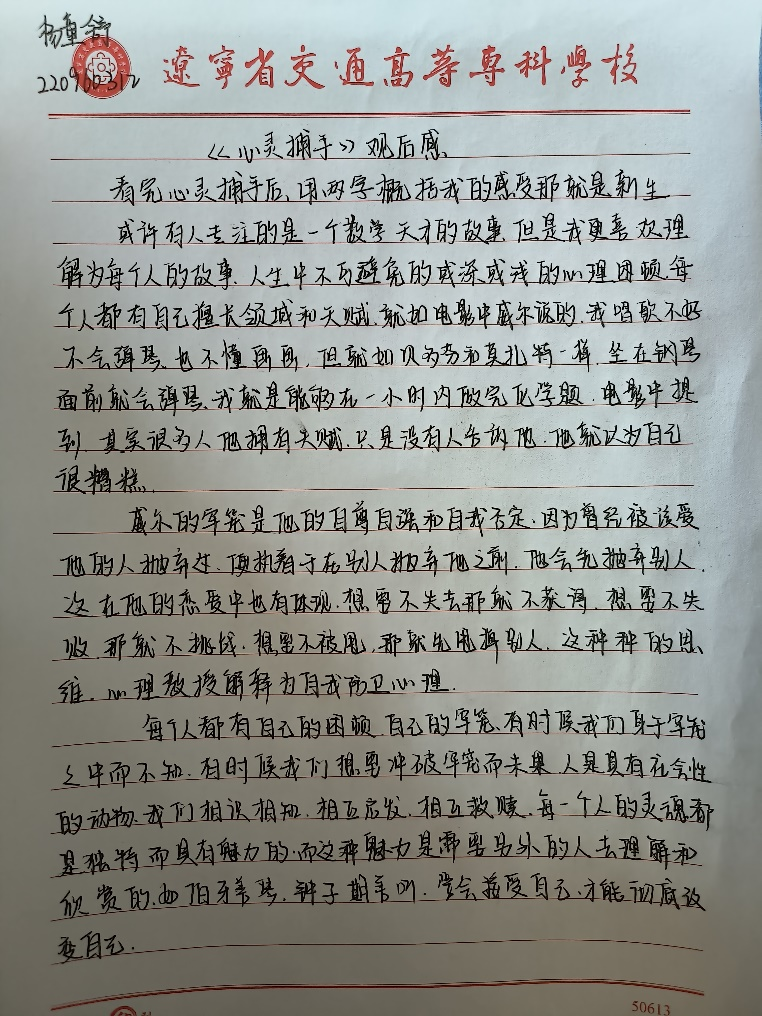 杨重舒
220960312
辽宁省交通高等专科学校
《心灵捕手》观后感
看完心灵捕手后,用两字概括我的感受那就是新生
或许有人专注的是一个数学天才的故事,但是我更喜欢理
解为每个人的故事,人生中不可避免的或深或浅的心理困顿,每
个人都有自己擅长领域和天赋.就如电影中威尔说的,我唱歌不好
不会弹琴,也不懂画画,但就如贝多芬和莫扎特一样,坐在钢琴
面前就会弹琴,我就是能够在一小时内做完化学题.电影中提
到,其实很多人他拥有天赋.只是没有人告诉他.他就以为自己
很糟糕.
威尔的牢笼是他的自尊自强和自我否定.因为曾经被该爱
他的人抛弃过,便执着于在别人抛弃他之前,他会先抛弃别人.
这在他的恋爱中也有体现.想要不失去那就不获得.想要不失
败,那就不挑战.想要不被甩,那就先甩掉别人.这种种的思
维,心理教授解释为自我防卫心理.
每个人都有自己的困顿,自己的牢笼.有时候我们身于牢笼
之中而不知.有时候我们想要冲破牢笼而未果.人是具有社会性
的动物.我们相识相知.相互启发.相互救赎.每一个人的灵魂都
是独特而具有魅力的.而这种魅力是需要另外的人去理解和
欣赏的.如伯牙善琴.钟子期善听.学会接受自己.才能彻底改
变自己.
50613